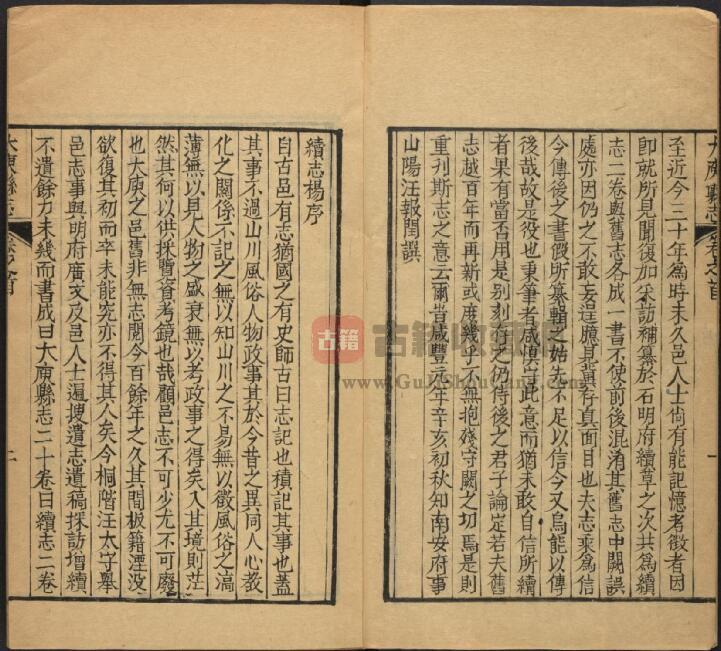 大庾縣志 卷之首 一
至近今三十年爲時未久邑人士尙有能記憶者徵者因
卽就所見聞復加采訪補纂於石明府續草之次共爲續
志二卷與舊志各成一書不使前後混淆其舊志中闕誤
處亦因仍之不敢妄逞臆見冀存真面目也夫志乘爲信
今傳後之書假所纂輯之始先不足以信今又烏能以傳
後哉故是役也秉筆者咸懍此意而猶未敢自信所續
者果有當否用是别刻存之仍待後之君子論定若夫舊
志越百年而再新或庶幾乎不無抱殘守闕之切焉是則
重刋斯志之意云爾旹咸豐元年辛亥初秋知南安府事
山陽汪報閏譔
續志楊序
自古邑有志猶國之有史師古曰志記也積記其事也蓋
其事不過山川風俗人物政事其於今昔之異同人心教
化之關係不記之無以知山川之不易無以徵風俗之漓
薄無以見人物之盛衰無以考政事之得矣入其境則茫
然其何以供採覽資考鏡也哉顧邑志不可少尤不可廢
也大庾之邑舊非無志閱今百餘年之久其間板籍湮没
欲復其初而卒未能究亦不得其人矣今桐階汪太守舉
邑志事與明府廣文及邑人士遍搜遺志遺稿探訪增續
不遺餘力未幾而書成曰大庾縣志二十卷曰續志二卷
大庾縣志 卷之首 二
古籍 古籍收藏
www.GuJiShouCang.com